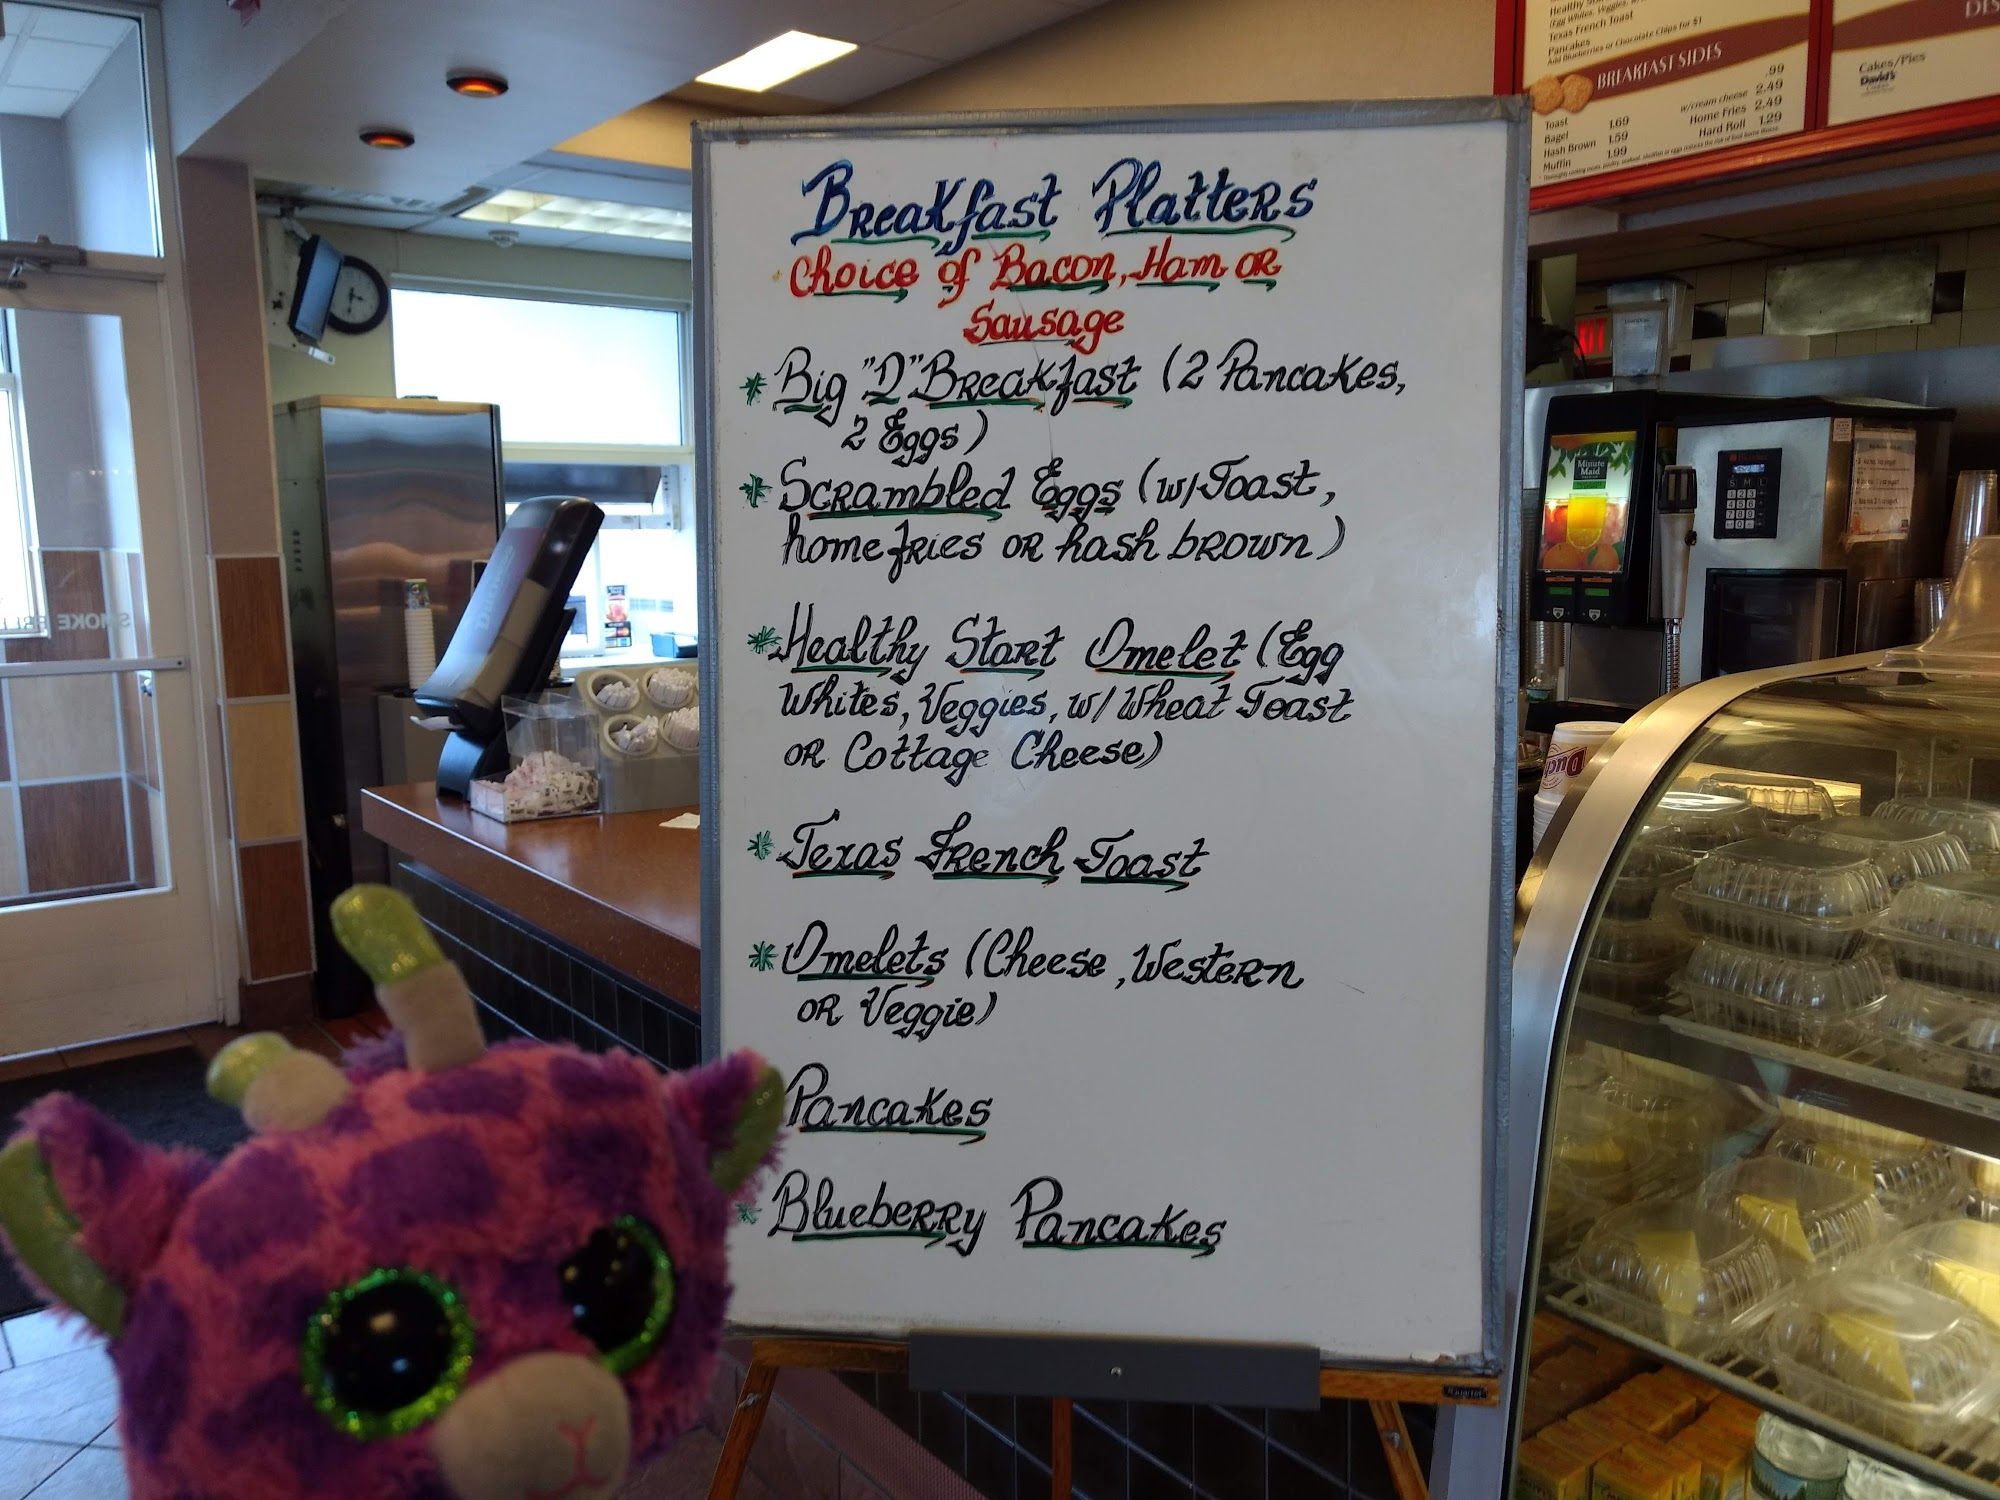 Breakfast Platters
Choice of Bacon, Ham or
Sausage
* Big "D" Breakfast (2 Pancakes,
2 Eggs)
* Scrambled Eggs (w/Toast,
home fries or hash brown)
* Healthy Start Omelet (Egg
Whites, Veggies, w/ Wheat Toast
or Cottage Cheese)
* Texas French Toast
* Omelets (Cheese, Western
or Veggie)
Pancakes
* Blueberry Pancakes
Healthy
(Egg Whites, Veggies,
Texas French Toast
Pancakes
Add Blueberries or Chocolate Chips for $1
BREAKFAST SIDES
Toast 1.69
Bagel 1.59
Hash Brown 1.99
Muffin
.99
w/cream cheese 2.49
Home Fries 2.49
Hard Roll 1.29
DES
Cakes/Pies
David's
Minute
Maid
S M L
SMOKE